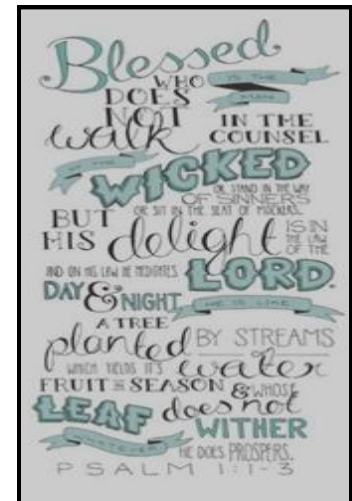 Blessed
IS THE
MAN
WHO
DOES
NOT
walk IN THE
COUNSEL
OF THE
WICKED
OR STAND IN THE WAY
OF SINNERS
OR SIT IN THE SEAT OF MOCKERS.
BUT
HIS delight IS IN
THE LAW
OF THE
LORD.
AND ON HIS LAW HE MEDITATES
DAY & NIGHT.
HE IS LIKE
A TREE
planted BY STREAMS
WHICH YIELDS IT'S water
FRUIT IN SEASON & WHOSE
LEAF does not
WITHER
WHATEVER
HE DOES PROSPERS.
PSALM 1:1-3